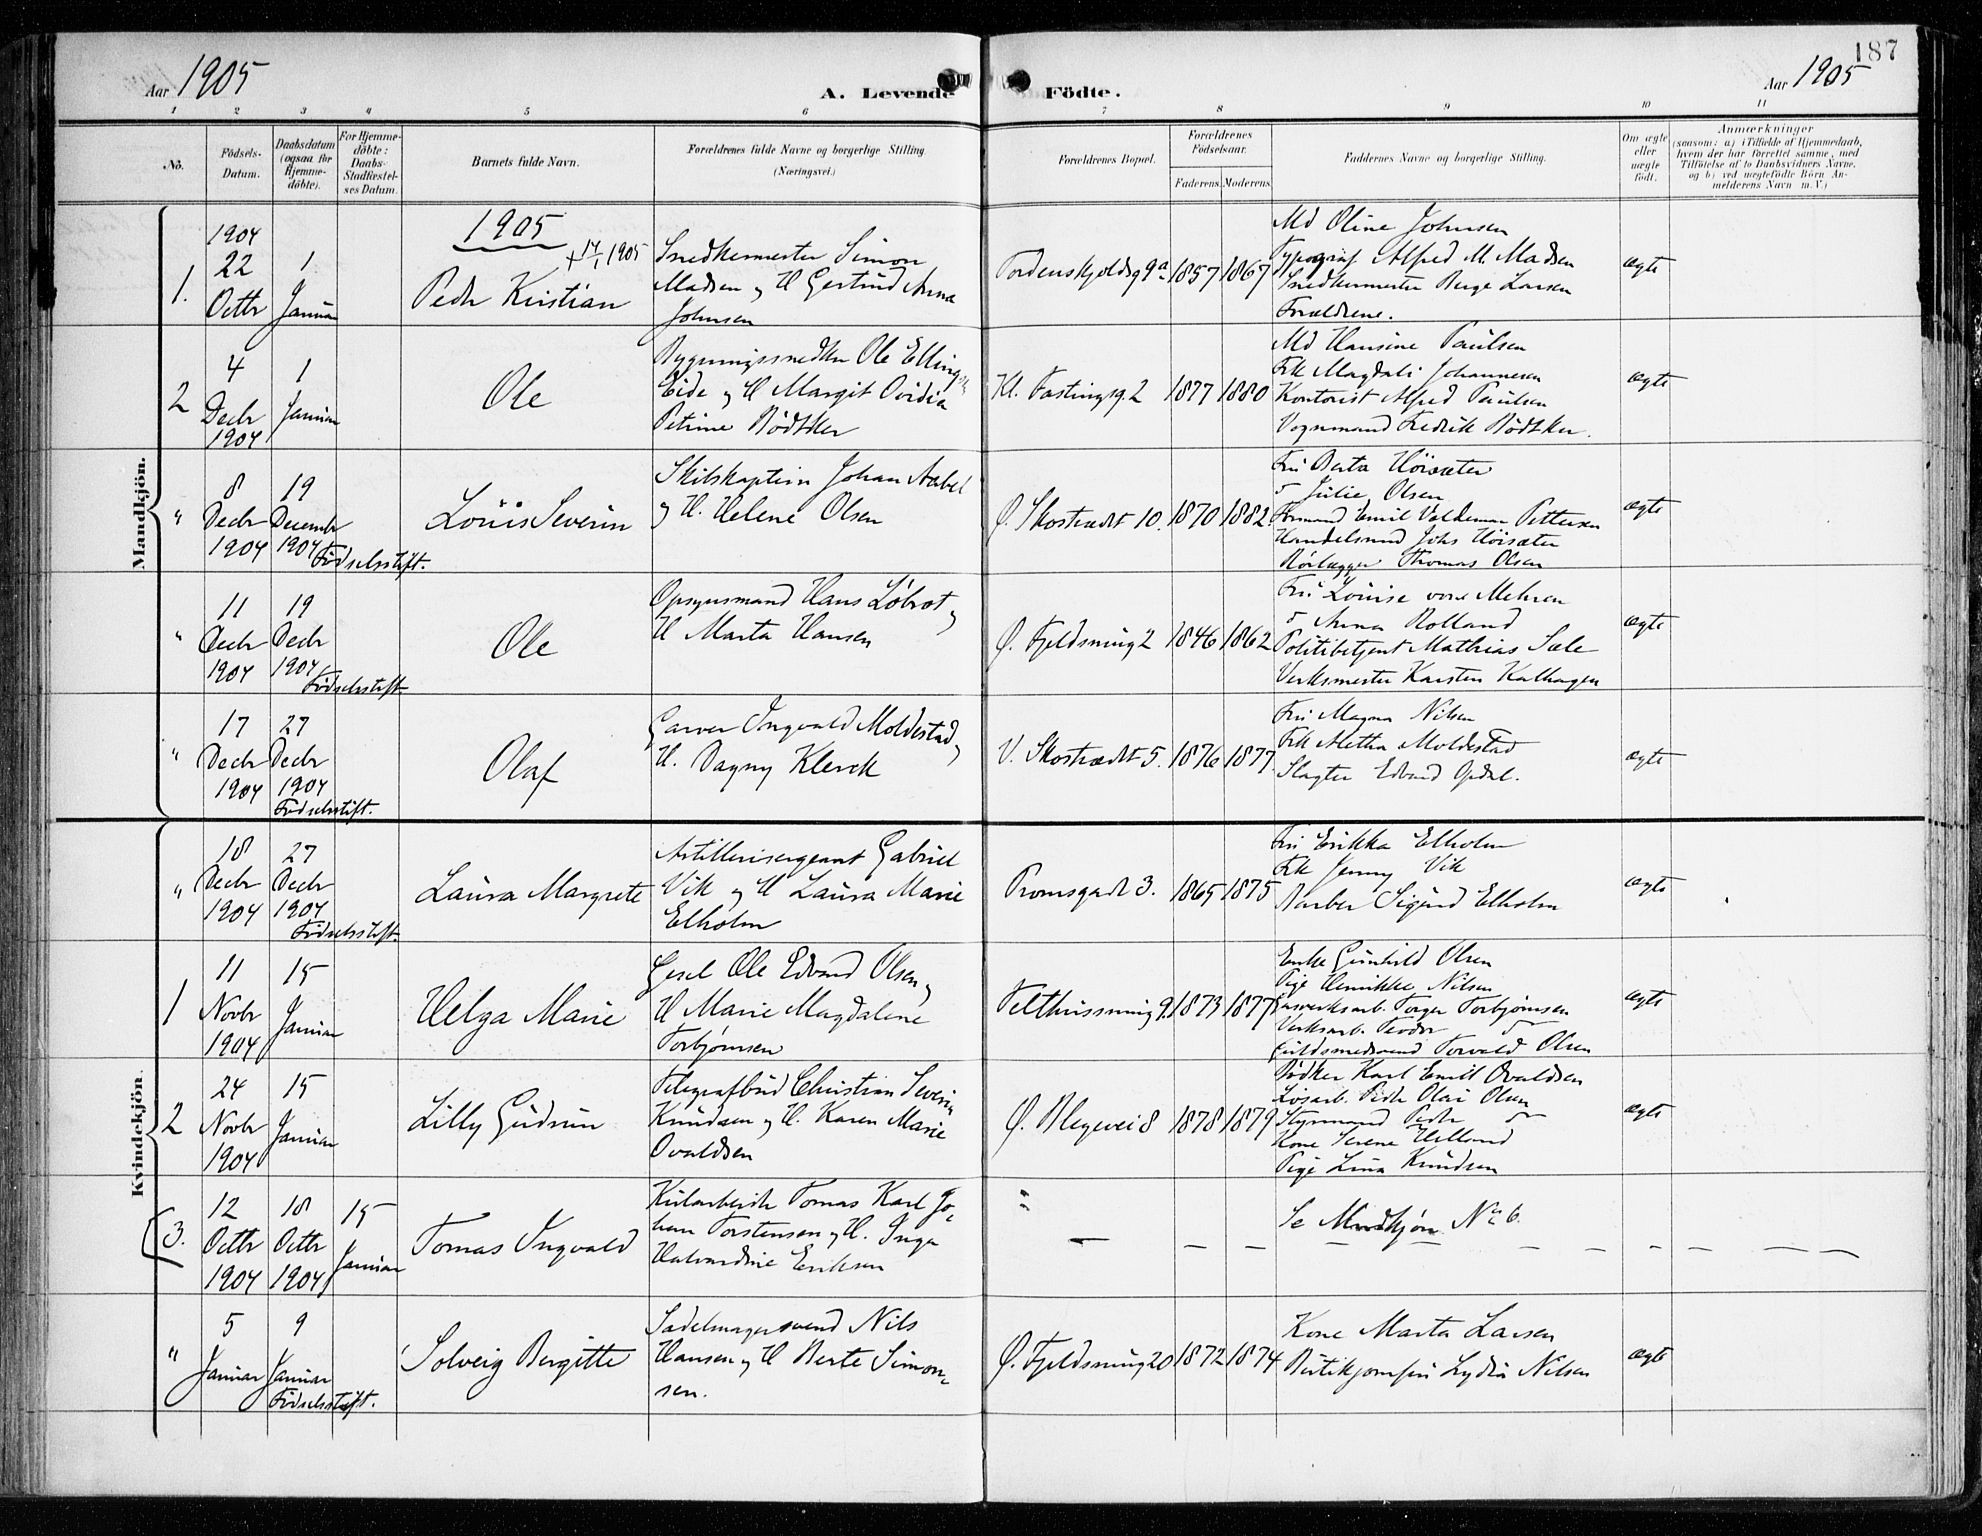 187
Aar 1905
A. Levende Födte.
Aar 1905
1 2 3 4 5 6 7 8 9 10 11
No.
Födsels-Datum.
Daabsdatum (ogsaa for Hjemmedöbte).
For Hjemmedöbte: Daabs-Stadfæstelses Datum.
Barnets fulde Navn.
Forældrenes fulde Navne og borgerlige Stilling.
(Næringsvei.)
Forældrenes Bopæl.
Forældrenes Födselsaar.
Faderens. Moderens.
Faddernes Navne og borgerlige Stilling.
Om ægte eller uægte födt.
Anmærkninger
(saasom: a) i Tilfælde af Hjemmedaab, hvem der har forrettet samme, med Tilföielse af to Daabsvidners Navne, og b) ved uægtefödte Börn Anmelderens Navn m. V.)
Mandkjön.
1905
1.
1904
22
Octbr
1
Januar
+ 14/1 1905
Peder Kristian
Snedkermester Simon
Madsen og H Gertrud Anna
Johnsen
Tordenskjoldsg 9a
1857
1867
Md Oline Johnsen
Typograf Alfred M. Madsen
Snedkermester Berge Larsen
Forældrene.
ægte
2
4
Decbr
1904
1
Januar
Ole
Bygningssnedker Ole Ellingsen
Eide og H Margit Ovidia
Petrine Bödtker
Kl. Fastingsg. 2
1877
1880
Md Hansine Paulsen
Frk Magdali Johannesen
Kontorist Alfred Paulsen
Vognmand Fredrik Bödtker.
ægte
"
8
Decbr
1904
19
December
1904
Födselsstift.
Louis Severin
Skibskaptein Johan Aabel
og H. Helene Olsen
Ø. Skostrædet 10.
1870
1882
Fru Berta Höisæter
" Julie Olsen
Formand Emil Valdemar Pettersen
Handelsmand Johs Höisæter
Rörlægger Thomas Olsen
ægte
"
11
Decbr
1904
19
Decbr
1904
Födselsstift
Ole
Opsynsmand Hans Löbrot og
H Marta Hansen
Ø. Fjeldsmug 2
1846
1862
Fru Louise von Mehren
" Anna Rolland
Politibetjent Mathias Sæle
Verksmester Karsten Kalhagen
ægte
"
17
Decbr
1904
27
Decbr
1904
Födselsstift.
Olaf
Garver Ingvald Moldestad og
H. Dagny Klerck
V. Skostrædet 5.
1876
1877
Fru Magna Nilsen
Frk Metha Moldestad
Slagter Edvard Opdal.
ægte
Kvindekjön.
"
18
Decbr
1904
27
Decbr
1904
Födselsstift.
Laura Margrete
Artillerisergeant Gabriel
Vik og H Laura Marie
Elholm
Promsgade 3.
1865
1875
Fru Erikka Elholm
Frk Jenny Vik
Barber Sigurd Elholm
ægte
1
11
Novbr
1904
15
Januar
Helga Marie
Gesel Ole Edvard Olsen og
H Marie Magdalene
Torbjørnsen
Felthussmug 9.
1873
1877
Enke Gunhild Olsen
Pige Henrikke Nilsen
Gasverksarb. Torger Torbjørnsen
Verksarb. Teodor "
Guldsmedsvend Torvald Olsen
ægte
2
24
Novbr
1904
15
Januar
Lilly Gudrun
Telegrafbud Christian Severin
Knudsen og H. Karen Marie
Ovaldsen
Ø. Blegevei 8
1878
1879
Bödker Karl Emil Ovaldsen
Lösarb. Peder Olai Olsen
Styrmand Peder "
Kone Serene Helland
Pige Lina Knudsen
ægte
(3.
12
Octbr
1904
18
Octbr
1904
15
Januar
Tomas Ingvald
Kularbeider Tomas Karl Jo-
han Torstensen og H. Inga
Halvardine Eriksen
"
Se Mandkjøn No 6.
"
5
Januar
9
Januar
Födselsstift.
Solveig Bergitte
Sadelmagersvend Nils
Hansen og H Berte Simon-
sen.
Ø. Fjeldsmug 20
1872
1874
Kone Marta Larsen
Butikjomfru Lydia Nilsen
ægte